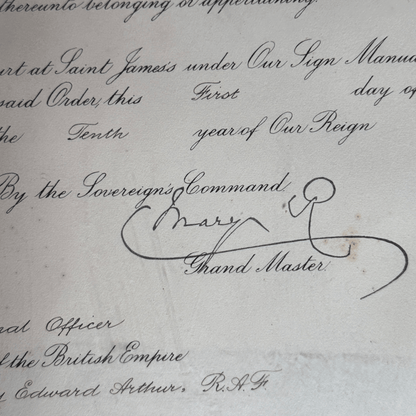 thereunto belonging or appertaining.
urt at Saint James's under Our Sign Manual
said Order, this First day of
the Tenth year of Our Reign
By the Sovereign's Command.
Mary R
Grand Master.
nal Officer
of the British Empire
y Edward Arthur. R.A.F.